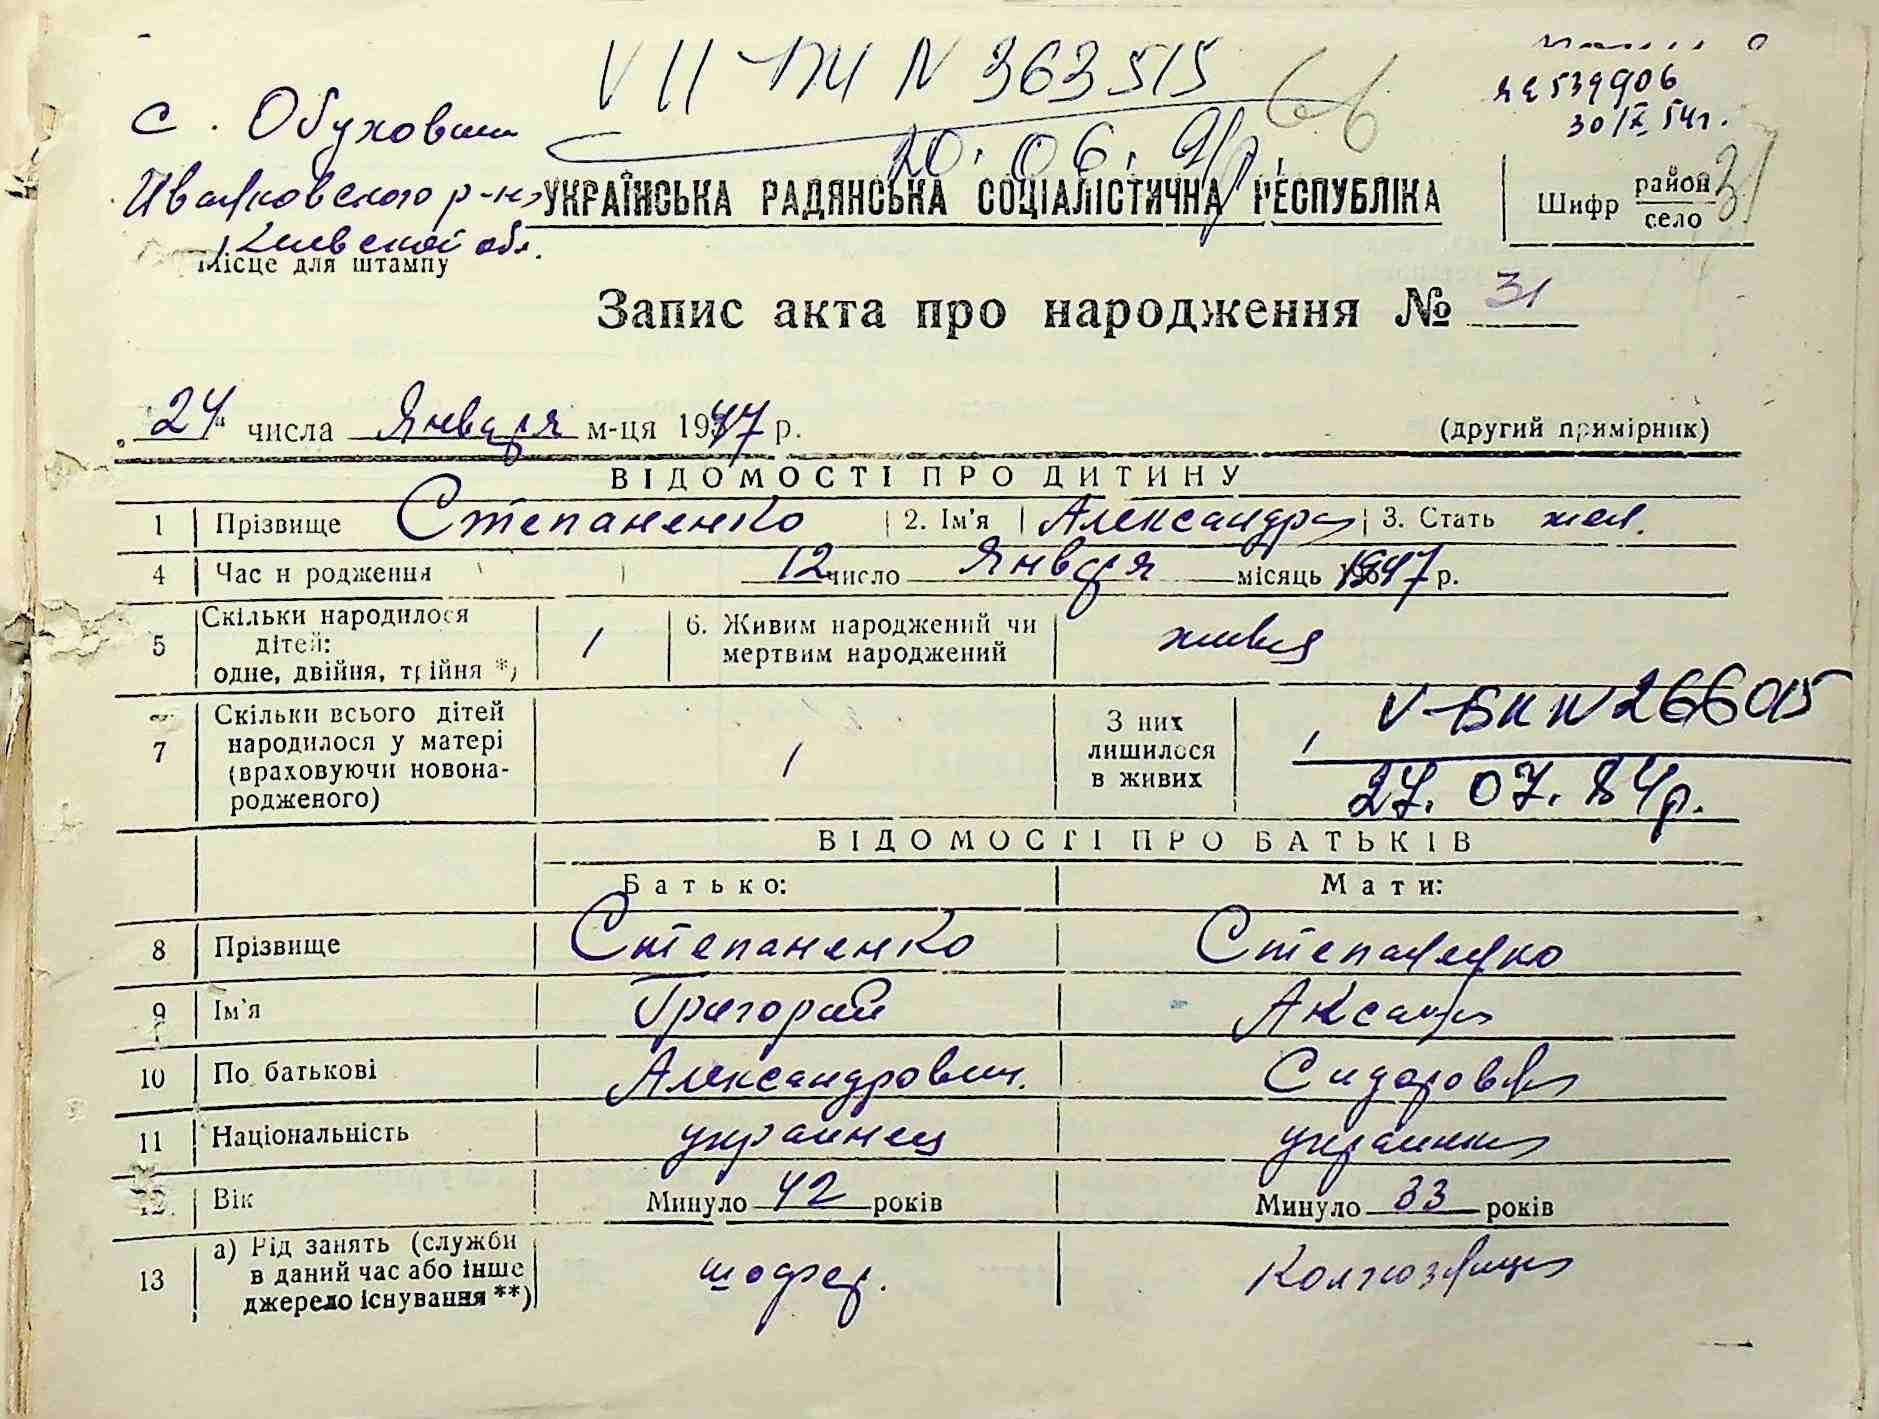 VII-ПИ N 363515
20.06.91р
ЯЕ 539906
30/X 54г.
с. Обуховичи
Иванковского р-на
Киевской обл.
УКРАЇНСЬКА РАДЯНСЬКА СОЦІАЛІСТИЧНА РЕСПУБЛІКА
Шифр район 31
село
Місце для штампу
Запис акта про народження № 31
„24“ числа Января м-ця 1947 р.
(другий примірник)
ВІДОМОСТІ ПРО ДИТИНУ
1 Прізвище Степаненко 2. Ім'я Александра 3. Стать жен.
4 Час народження 12 число Января місяць 1947 р.
5 Скільки народилося дітей: одне, двійня, трійня *) 1 6. Живим народжений чи мертвим народжений живая
7 Скільки всього дітей народилося у матері (враховуючи новонародженого) 1 З них лишилося в живих 1
V-БК N 266015
27.07.84р.
ВІДОМОСТІ ПРО БАТЬКІВ
Батько: Мати:
8 Прізвище Степаненко Степаненко
9 Ім'я Григорий Аксания
10 По батькові Александрович Сидоровна
11 Національність украинец украинка
12. Вік Минуло 42 років Минуло 33 років
13 а) Рід занять (служби в даний час або інше джерело існування **) шофер. Колхозница